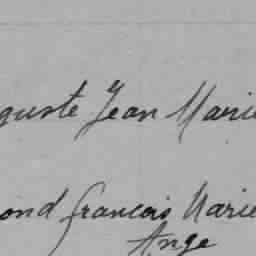 guste Jean Marie
ond francois Marie
Ange